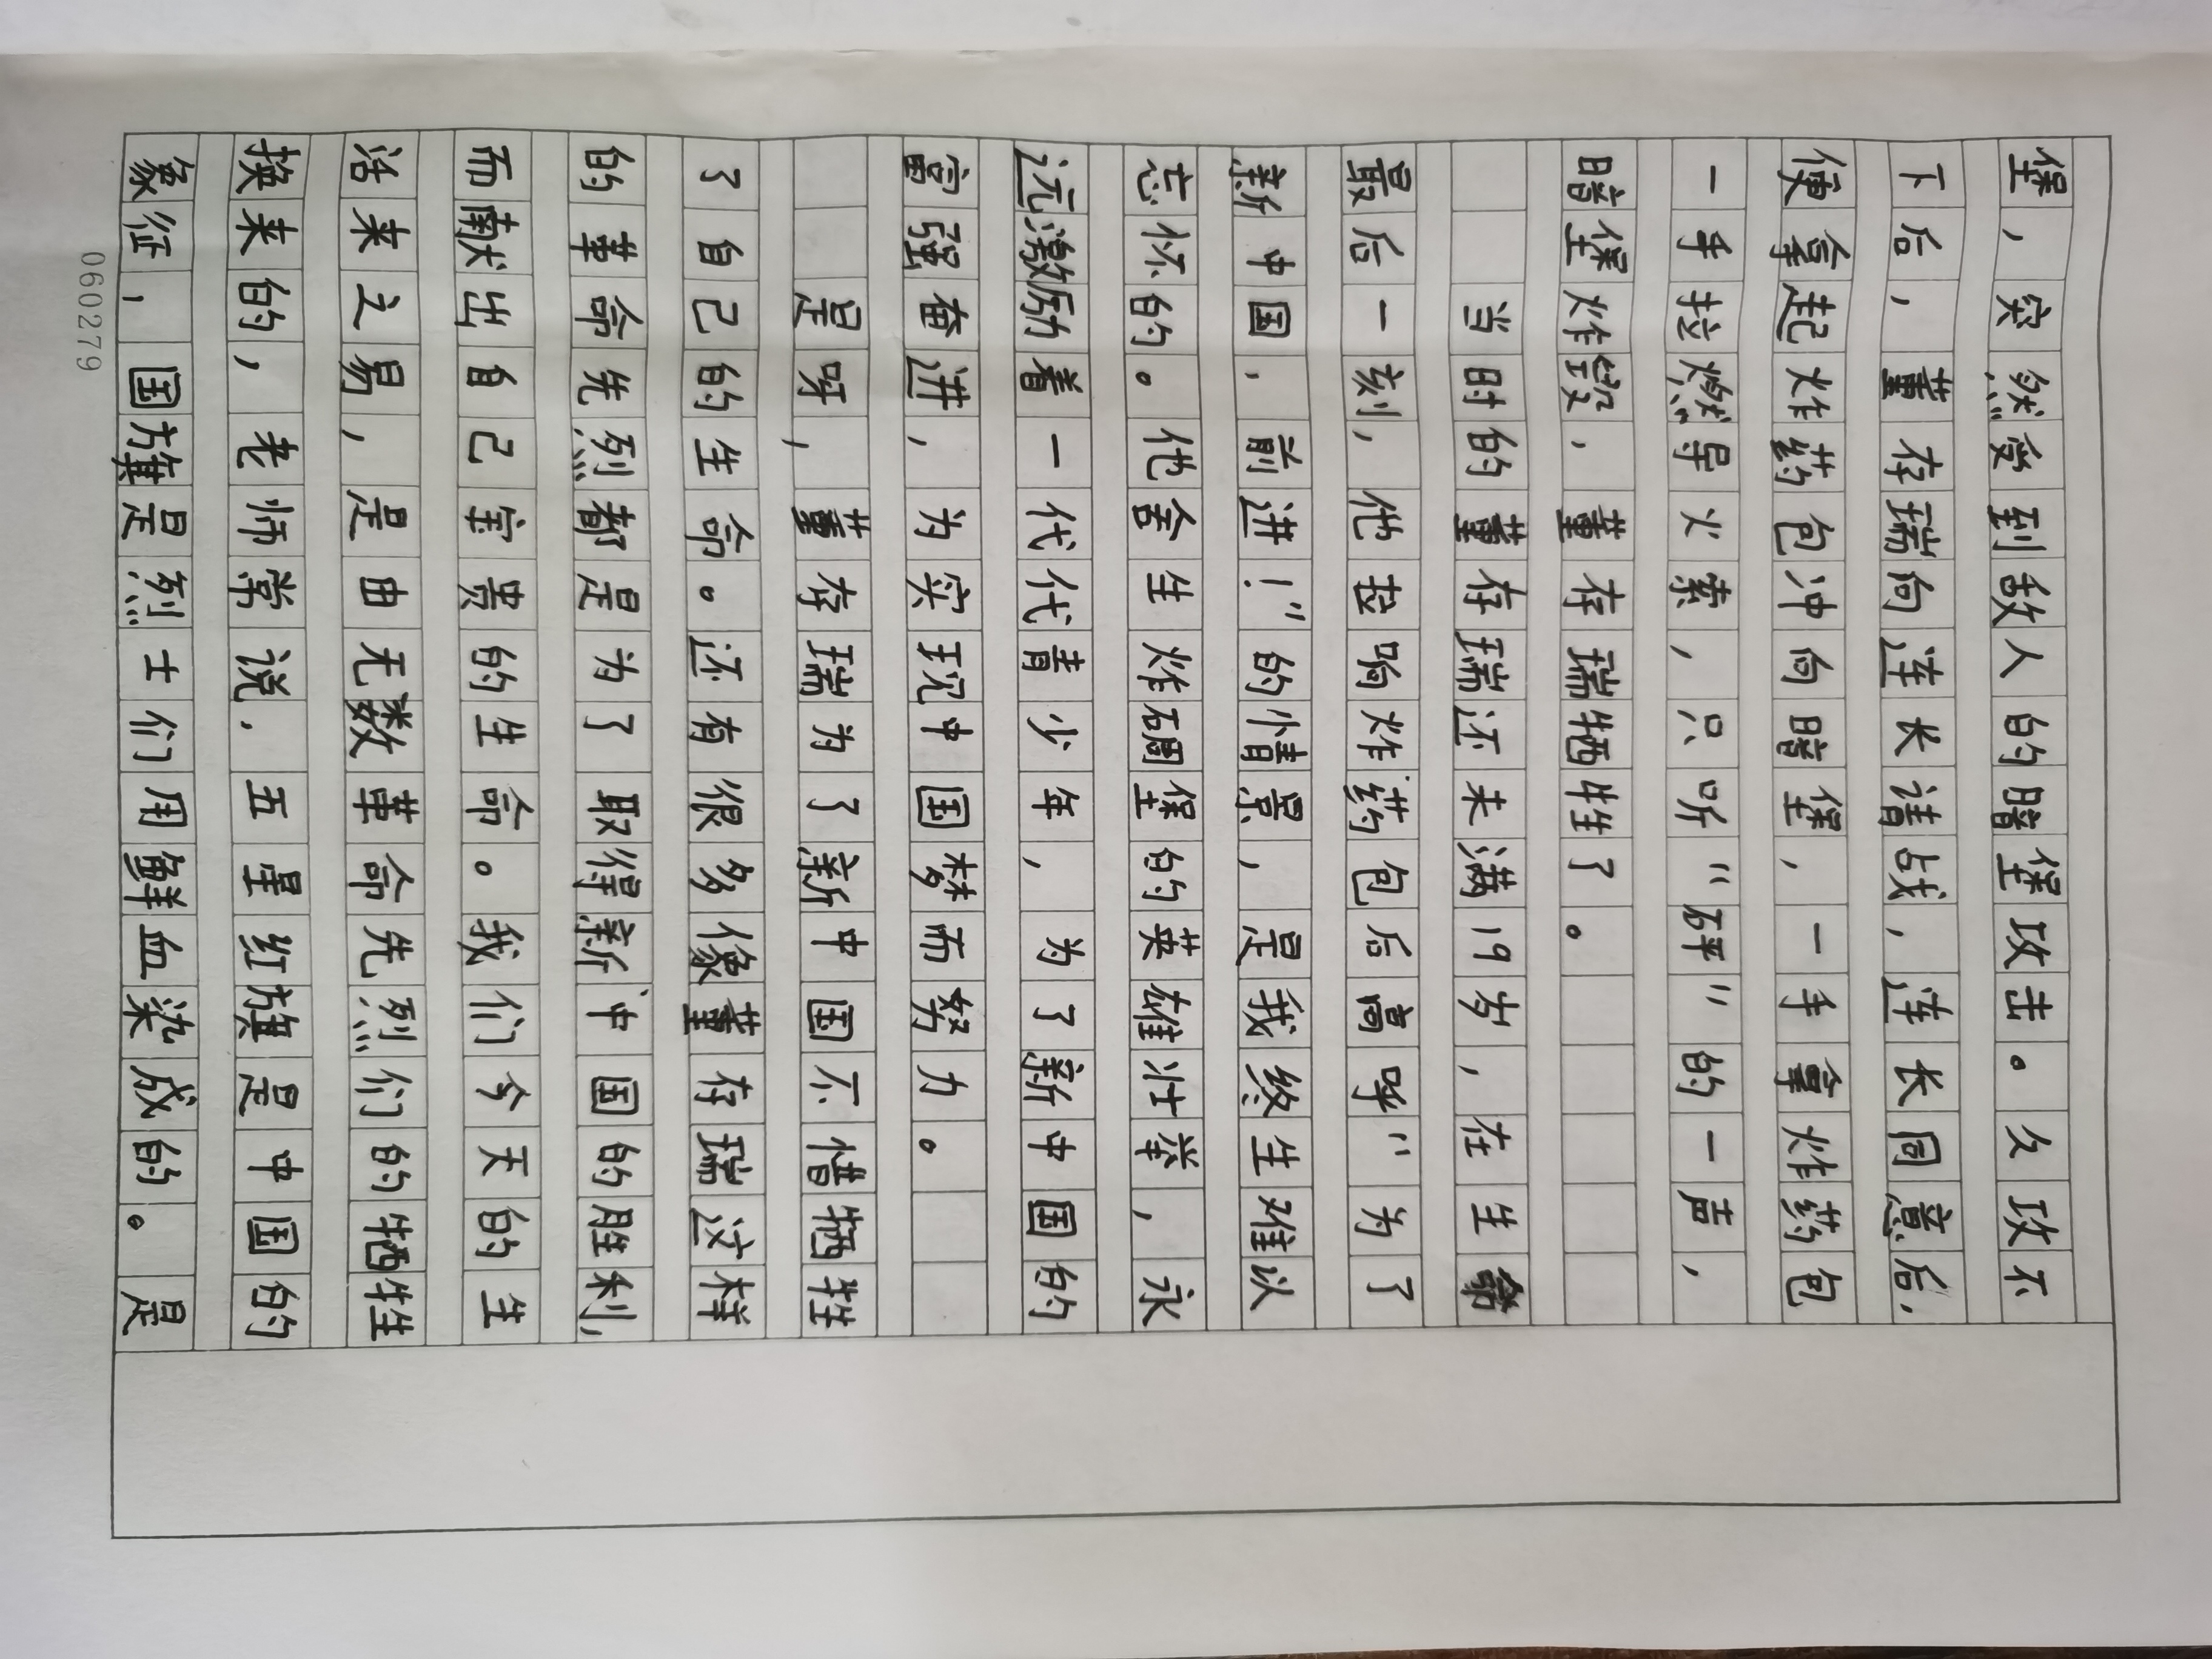 堡，突然受到敌人的暗堡攻击。久攻不
下后，董存瑞向连长请战，连长同意后，
便拿起炸药包冲向暗堡，一手拿炸药包
一手拉燃导火索，只听“砰”的一声，
暗堡炸毁，董存瑞牺牲了。
当时的董存瑞还未满19岁，在生命
最后一刻，他拉响炸药包后高呼“为了
新中国，前进！”的情景，是我终生难以
忘怀的。他舍生炸碉堡的英雄壮举，永
远激励着一代代青少年，为了新中国的
富强奋进，为实现中国梦而努力。
是呀，董存瑞为了新中国不惜牺牲
了自己的生命。还有很多像董存瑞这样
的革命先烈都是为了取得新中国的胜利，
而献出自己宝贵的生命。我们今天的生
活来之易，是由无数革命先烈们的牺牲
换来的，老师常说，五星红旗是中国的
象征，国旗是烈士们用鲜血染成的。是
0602279